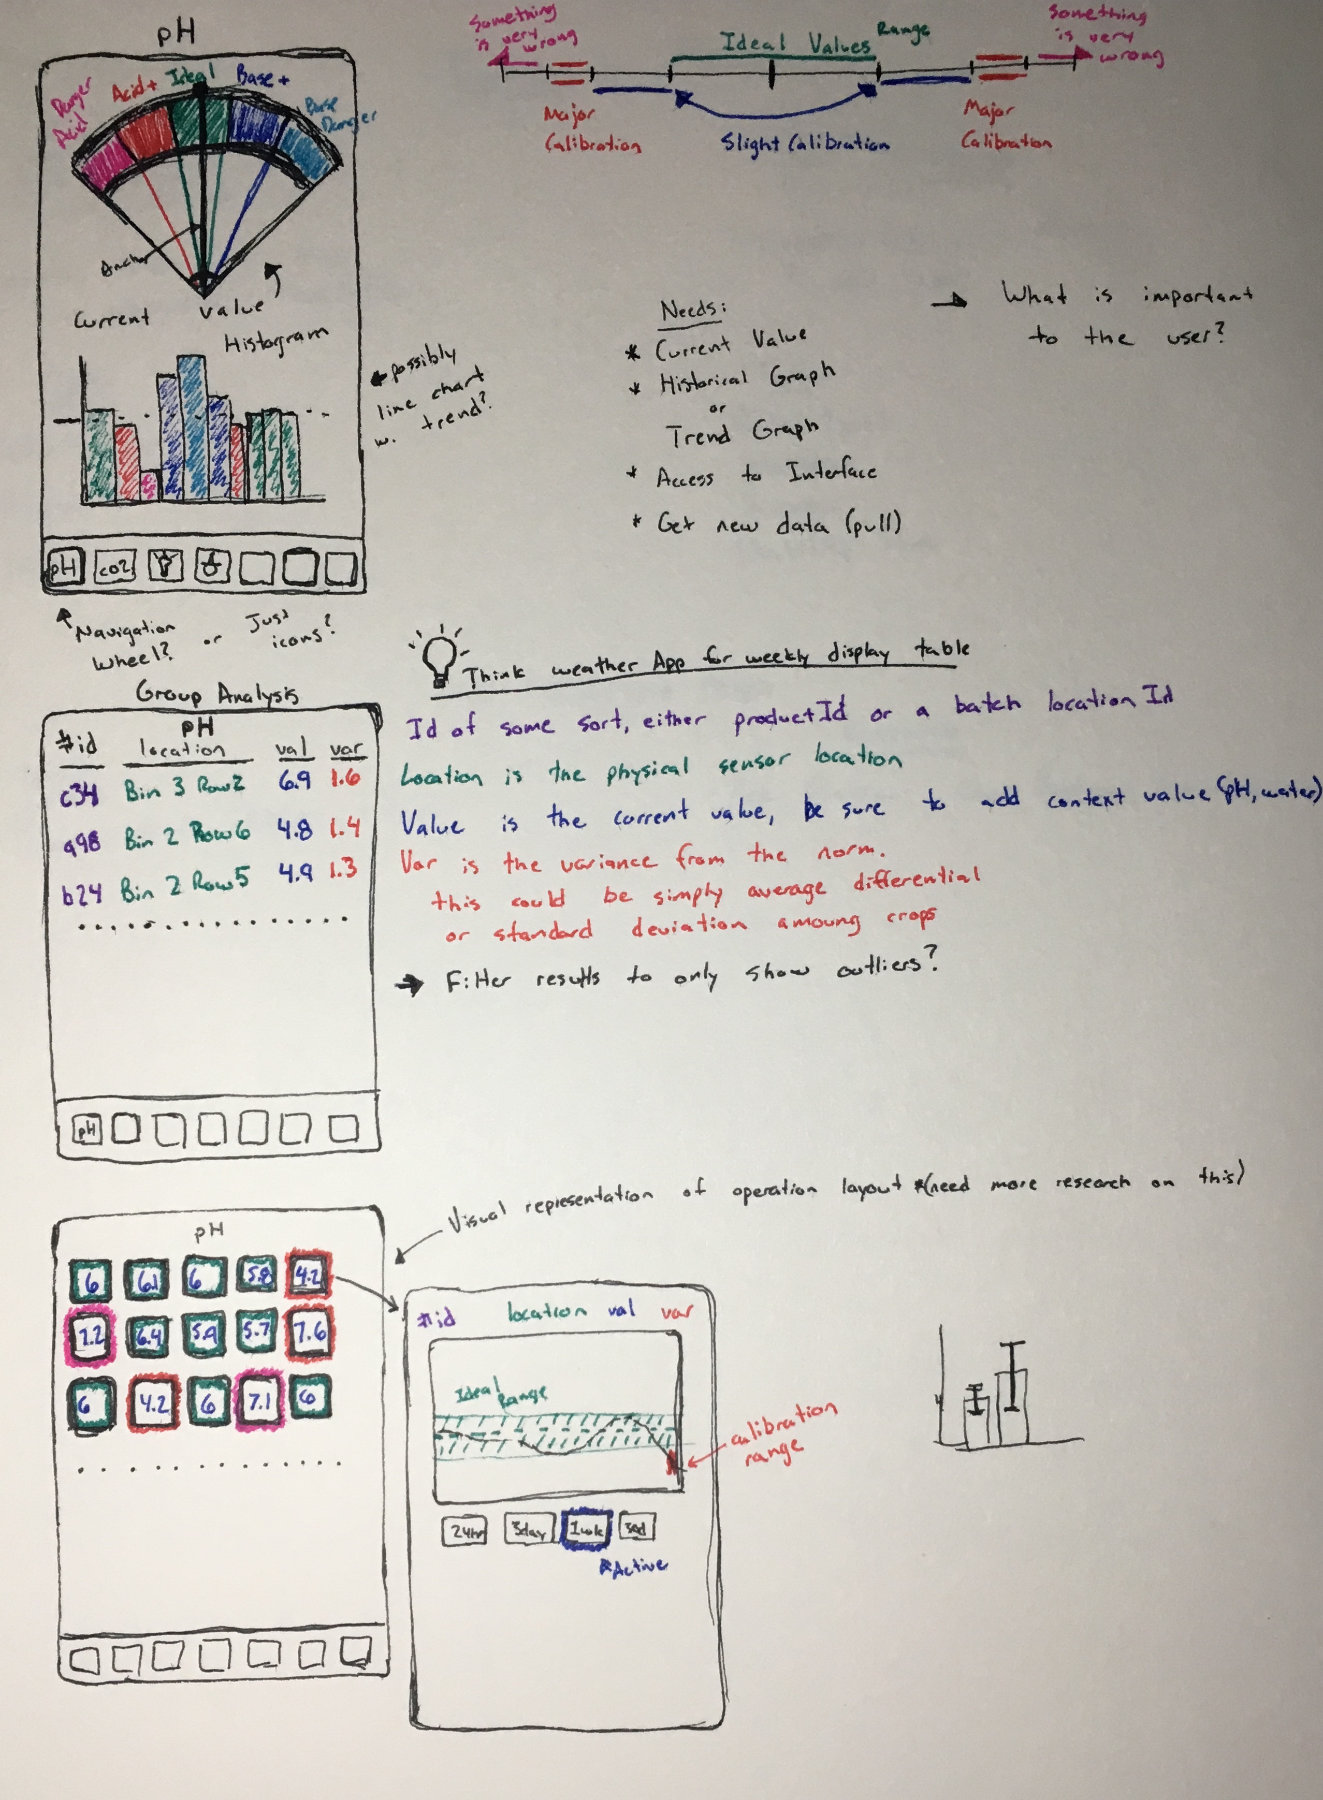 pH
Danger
Acid
Acid+
Ideal
Base +
Base
Danger
Anchor
Current Value
Histogram
possibly
line chart
w. trend?
pH
co2
Navigation
Wheel?
or
Just
icons?
Something
is very
wrong
Ideal Values Range
Something
is very
wrong
Major
Calibration
Slight Calibration
Major
Calibration
Needs:
* Current Value
* Historical Graph
or
Trend Graph
* Access to Interface
* Get new data (pull)
→ What is important
to the user?
Think weather App for weekly display table
Group Analysis
pH
#id location val var
c34 Bin 3 Row2 6.9 1.6
a98 Bin 2 Row6 4.8 1.4
b24 Bin 2 Row5 4.9 1.3
pH
Id of some sort, either productId or a batch location Id
Location is the physical sensor location
Value is the current value, be sure to add context value (pH, water)
Var is the variance from the norm.
this could be simply average differential
or standard deviation amoung crops
→ Filter results to only show outliers?
Visual representation of operation layout *(need more research on this)
pH
6 6.1 6 5.8 4.2
6.4 5.9 5.7 7.6
6 4.2 6 7.1 6
#id location val var
Ideal
Range
calibration
range
24hr 3day 1wk
*Active